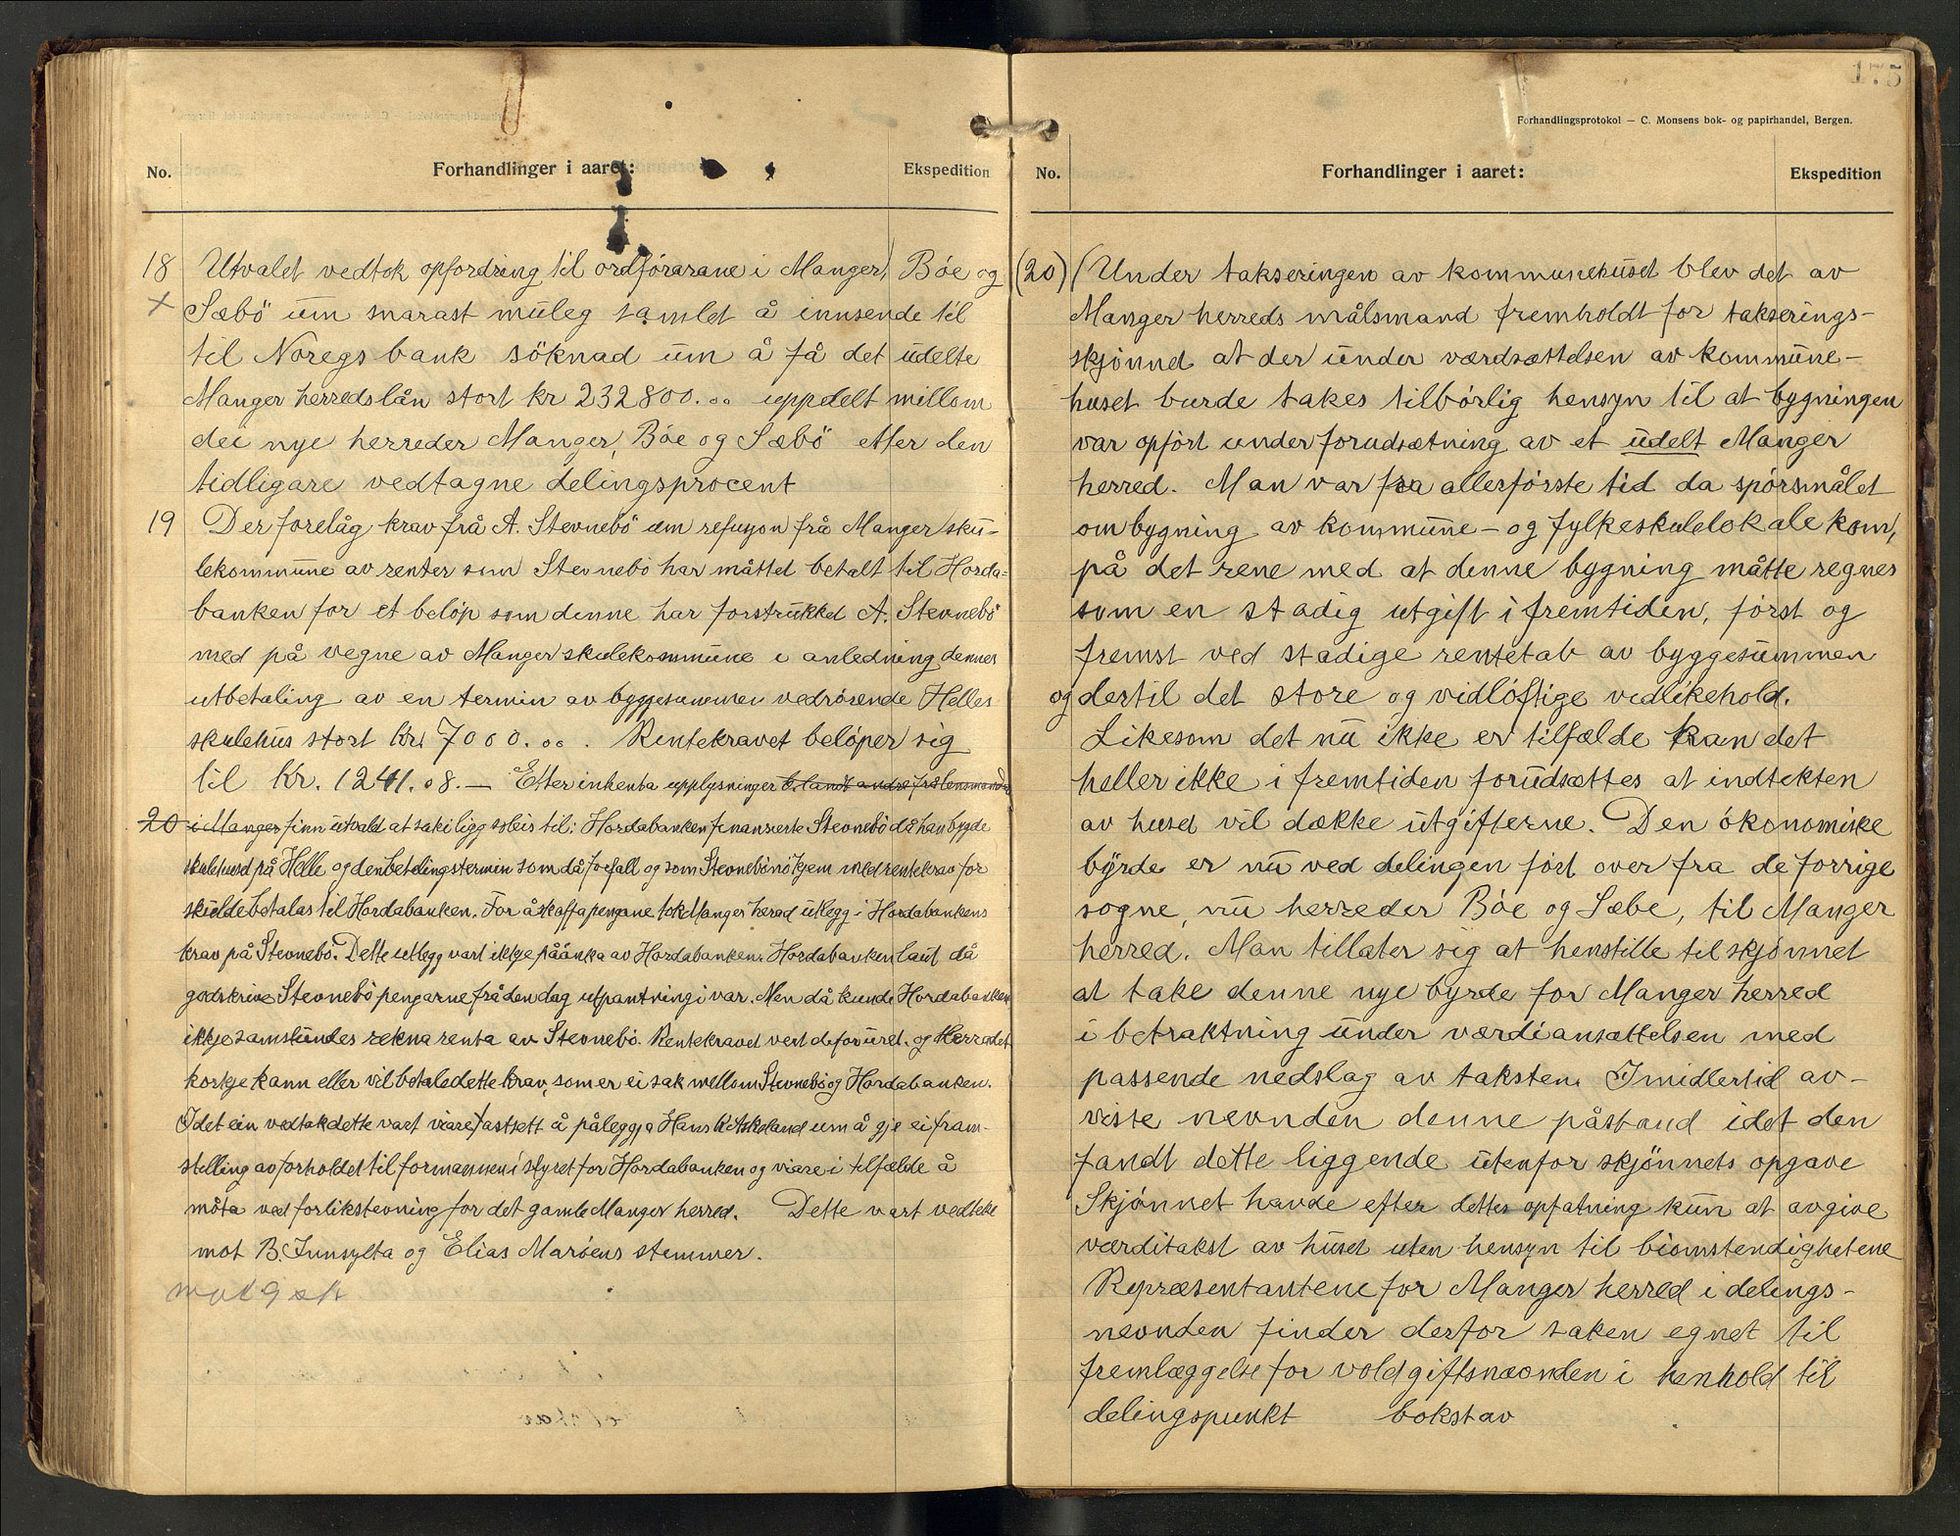 No. Forhandlinger i aaret: Ekspedition
18 Utvalet vedtok opfordring til ordförarane i Manger, Böe og
Sæbö um snarast muleg samlet å innsende til
til Noregs bank söknad um å få det udelte
Manger herredslån stort kr 232800.00 uppdelt millom
dei nye herreder Manger, Böe og Sæbö etter den
tidligare vedtagne delingsprocent
19 Der forelåg krav frå A. Stevnebö um refusjon frå Manger sku-
lekommune av renter som Stevnebö har måttet betalt til Horda-
banken for et belöp som denne har forstrukket A. Stevnebö
med på vegne av Manger skulekommune i anledning dennes
utbetaling av en termin av byggesummen vedrörende Helles
skulehus stort Kr. 7000.00. Rentekravet belöper sig
til Kr. 1241.08.— Etter inhenta upplysninger blandt andre frå lensmannen
20 i Manger finn utvalet at saki ligg soleis til: Hordabanken finansierte Stevnebö då han bygde
skulehuset på Helle og den betalingstermin som då forfall og som Stevnebö nö kjem med rentekrav for
skulde betalas til Hordabanken. For å skaffa pengane tok Manger herad utlegg i Hordabankens
krav på Stevnebö. Dette utlegg vart ikkje påanka av Hordabanken. Hordabanken laut då
godskrive Stevnebö pengarne frå den dag utpantningi var. Men då kunde Hordabanken
ikkje samstundes rekna renta av Stevnebö. Rentekravet vert difor uret. og Herradet
korkje kann eller vil betale dette krav, som er ei sak mellom Stevnebö og Hordabanken.
Idet ein vedtak dette vart viare fastsett å påleggja Hans K. Askeland um å gje ei fram-
stelling av forholdet til formannen i styret for Hordabanken og viare i tilfælde å
möta ved forlikstevning for det gamle Manger herred. Dette vart vedteke
mot B. Innsylta og Elias Maröens stemmer.
No. Forhandlinger i aaret: Ekspedition
175
Forhandlingsprotokol — C. Monsens bok- og papirhandel, Bergen.
(20) (Under takseringen av kommunehuset blev det av
Manger herreds målsmand fremholdt for takserings-
skjönnet at der under værdsættelsen av kommune-
huset burde takes tilbörlig hensyn til at bygningen
var opfört under forudsætning av et udelt Manger
herred. Man var fra allerförste tid da spörsmålet
om bygning av kommune- og fylkeskulelokale kom,
på det rene med at denne bygning måtte regnes
som en stadig utgift i fremtiden, först og
fremst ved stadige rentetab av byggesummen
og dertil det store og vidlöftige vedlikehold.
Likesom det nu ikke er tilfælde kan det
heller ikke i fremtiden forudsættes at indtekten
av huset vil dække utgifterne. Den ökonomiske
byrde er nu ved delingen fört over fra de forrige
sogne, nu herreder Böe og Sæbe, til Manger
herred. Man tillater sig at henstille til skjönnet
at take denne nye byrde for Manger herred
i betraktning under værdiansættelsen med
passende nedslag av taksten. Imidlertid av-
viste nevnden denne påstand idet den
fandt dette liggende utenfor skjönnets opgave
Skjönnet havde efter dettes opfatning kun at avgive
værditakst av huset uten hensyn til biomstendighetene
Repræsentantene for Manger herred i delings-
nevnden finder derfor saken egnet til
fremlæggelse for voldgiftsnævnden i henhold til
delingspunkt bokstav